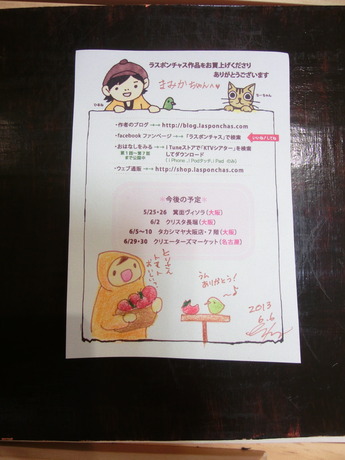 ラスポンチャス作品をお買上げくださり
ありがとうございます
まみかちゃんへ♥
ひさえ
ちーちゃん
・作者のブログ→→http://blog.lasponchas.com
・facebook ファンページ→→「ラスポンチャス」で検索
いいね!してね
・おはなしをみる→→iTuneストアで「KTVシアター」を検索
第1回〜第7回
まで公開中
してダウンロード
(iPhone／iPodタッチ／iPad のみ)
・ウェブ通販→→http://shop.lasponchas.com
※今後の予定※
5/25・26 箕面ヴィソラ(大阪)
6/2 クリスタ長堀(大阪)
6/5〜10 タカシマヤ大阪店・7階(大阪)
6/29・30 クリエーターズマーケット(名古屋)
とりさん
トマト
おいしいよ
うん
ありがとう!
〜よ
2013
6.6